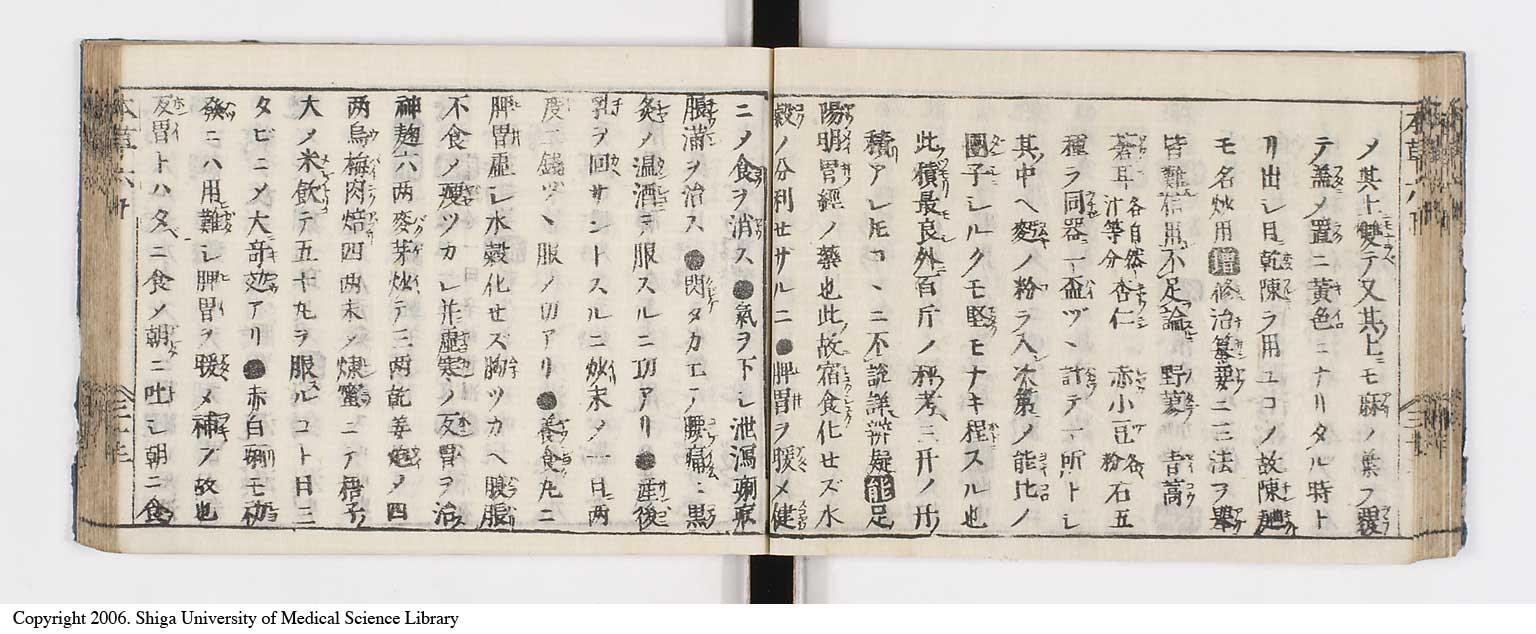 ノ其上雙テ又其上ニモ麻ノ葉ヲ覆
テ蓋メ置ニ黄色ニナリタル時ト
リ出シ日乾陳ラ用ユコノ故陳麹
モ名炒用 増 修治纂要ニ三法ヲ舉
皆難信用不足論 野蓼 青蒿
蒼耳 各自然汁等分 杏仁 赤小豆 各粉 石五
種ヲ同器一盃ヅヽ計テ一所トシ
其中ヘ麥ノ粉ラ入次第ノ能比ノ
團子ニシルクモ堅モナキ程スル也
此積最良外百斤ノ秤考三升ノ升
積アレ𪜈コヽニ不説詳辨疑 能 足
陽明胃經ノ藥也此故宿食化セズ水
穀ノ分利セサルニ●脾胃ヲ暖メ健
ニメ食ヲ消ス●氣ヲ下シ泄瀉痢
脹滿ヲ治ス●閃タカエノ腰痛ニ黒
灸ノ温酒ニ服スルニ功アリ●産後
乳ヲ回サントスルニ炒末ノ一日両
度二錢ヅヽ服ノ功アリ●養食丸ニ
脾胃虚シ水穀化セズ胸ツカヘ腹脹
不食ノ痩ツカレ并虚寒ノ反胃ヲ治
神麹六两麥芽炒テ三两乾姜炮メ四
两烏梅肉焙四两末メ煉蜜ニテ梧子
大ノ米飲テ五十丸ヲ服ルコト日三
タビニメ大奇效アリ●赤白痢モ初
發ニハ用難シ脾胃ヲ暖メ補フ故也
反胃トハタベニ食ノ朝ニ吐シ朝ニ食